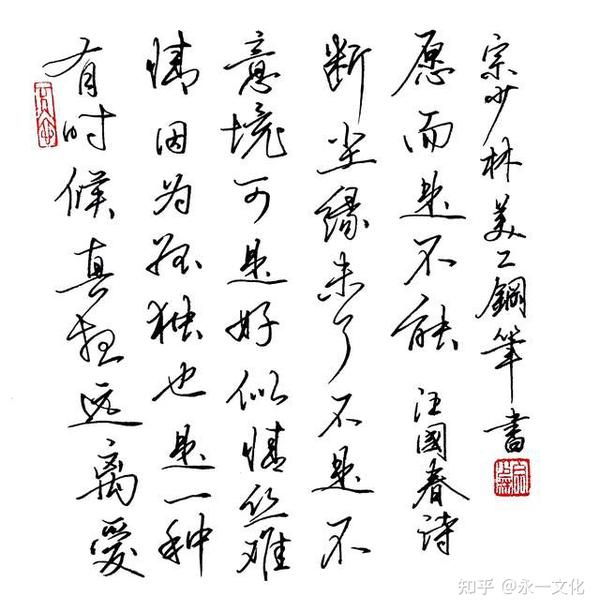 有时候真想远离愛
情因为孤独也是一种
意境可是好似情丝难
断尘缘未了不是不
愿而是不能 汪國春诗
宗少林美工鋼筆書
知乎 @永一文化